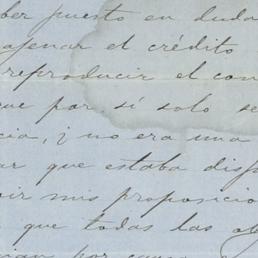 ber puesto en duda
ajenar el crédito
reproducir el con
que por sí solo se
cia, y no era una
ar que estaba disp
oir mis proposicio
que todas las o